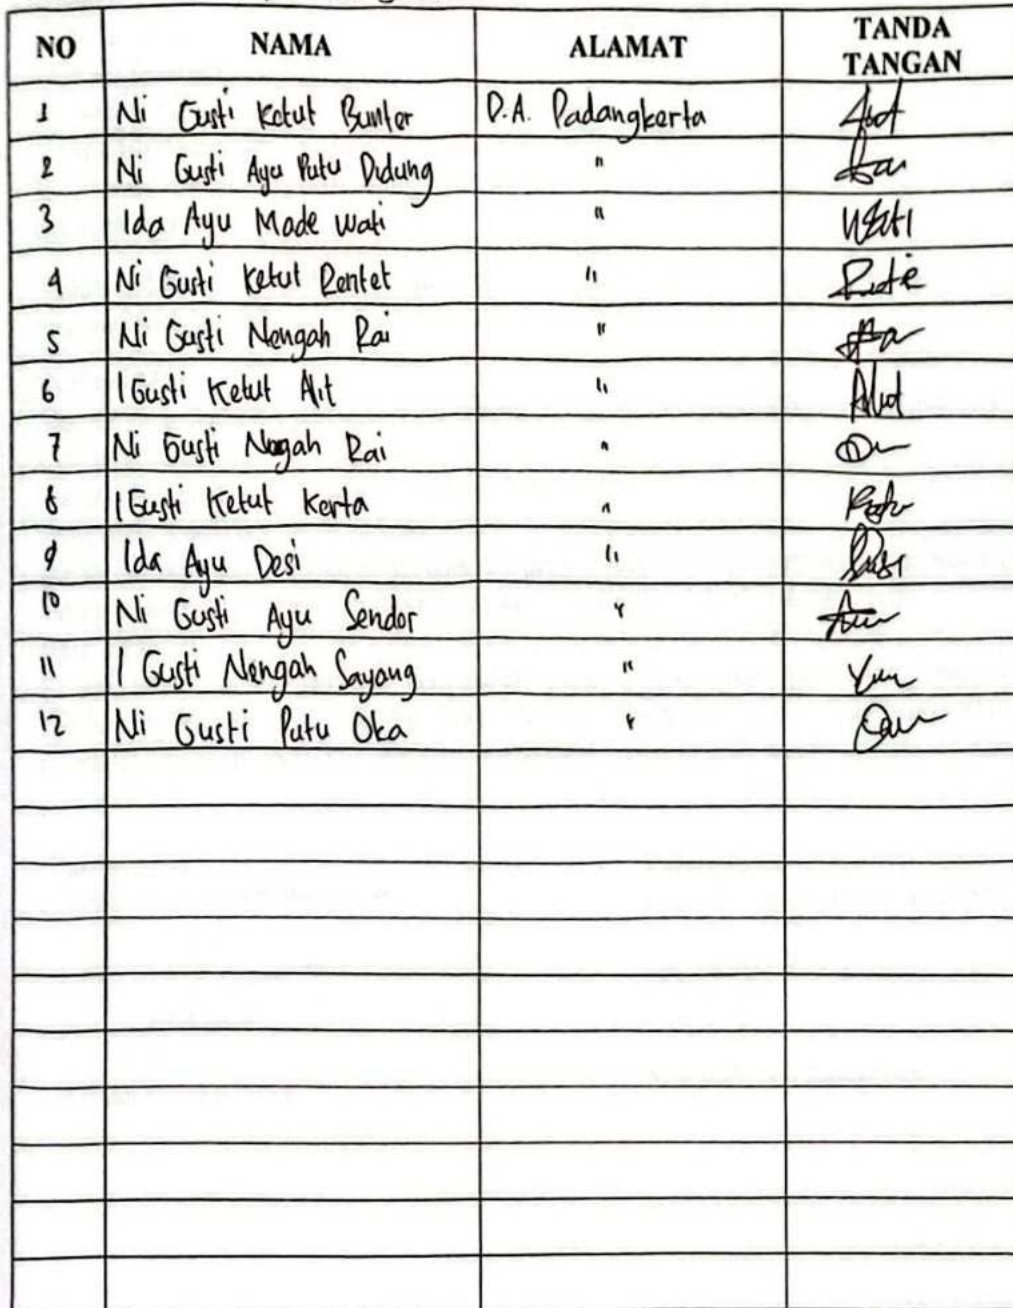 NO NAMA ALAMAT TANDA TANGAN
1 Ni Gusti Ketut Bunter D.A. Padangkerta
2 Ni Gusti Ayu Putu Didung "
3 Ida Ayu Made Wati " Wati
4 Ni Gusti Ketut Rentet "
5 Ni Gusti Nengah Rai "
6 I Gusti Ketut Alit "
7 Ni Gusti Nogah Rai "
8 I Gusti Ketut Kerta "
9 Ida Ayu Desi "
10 Ni Gusti Ayu Sendor "
11 I Gusti Nengah Sayang "
12 Ni Gusti Putu Oka "